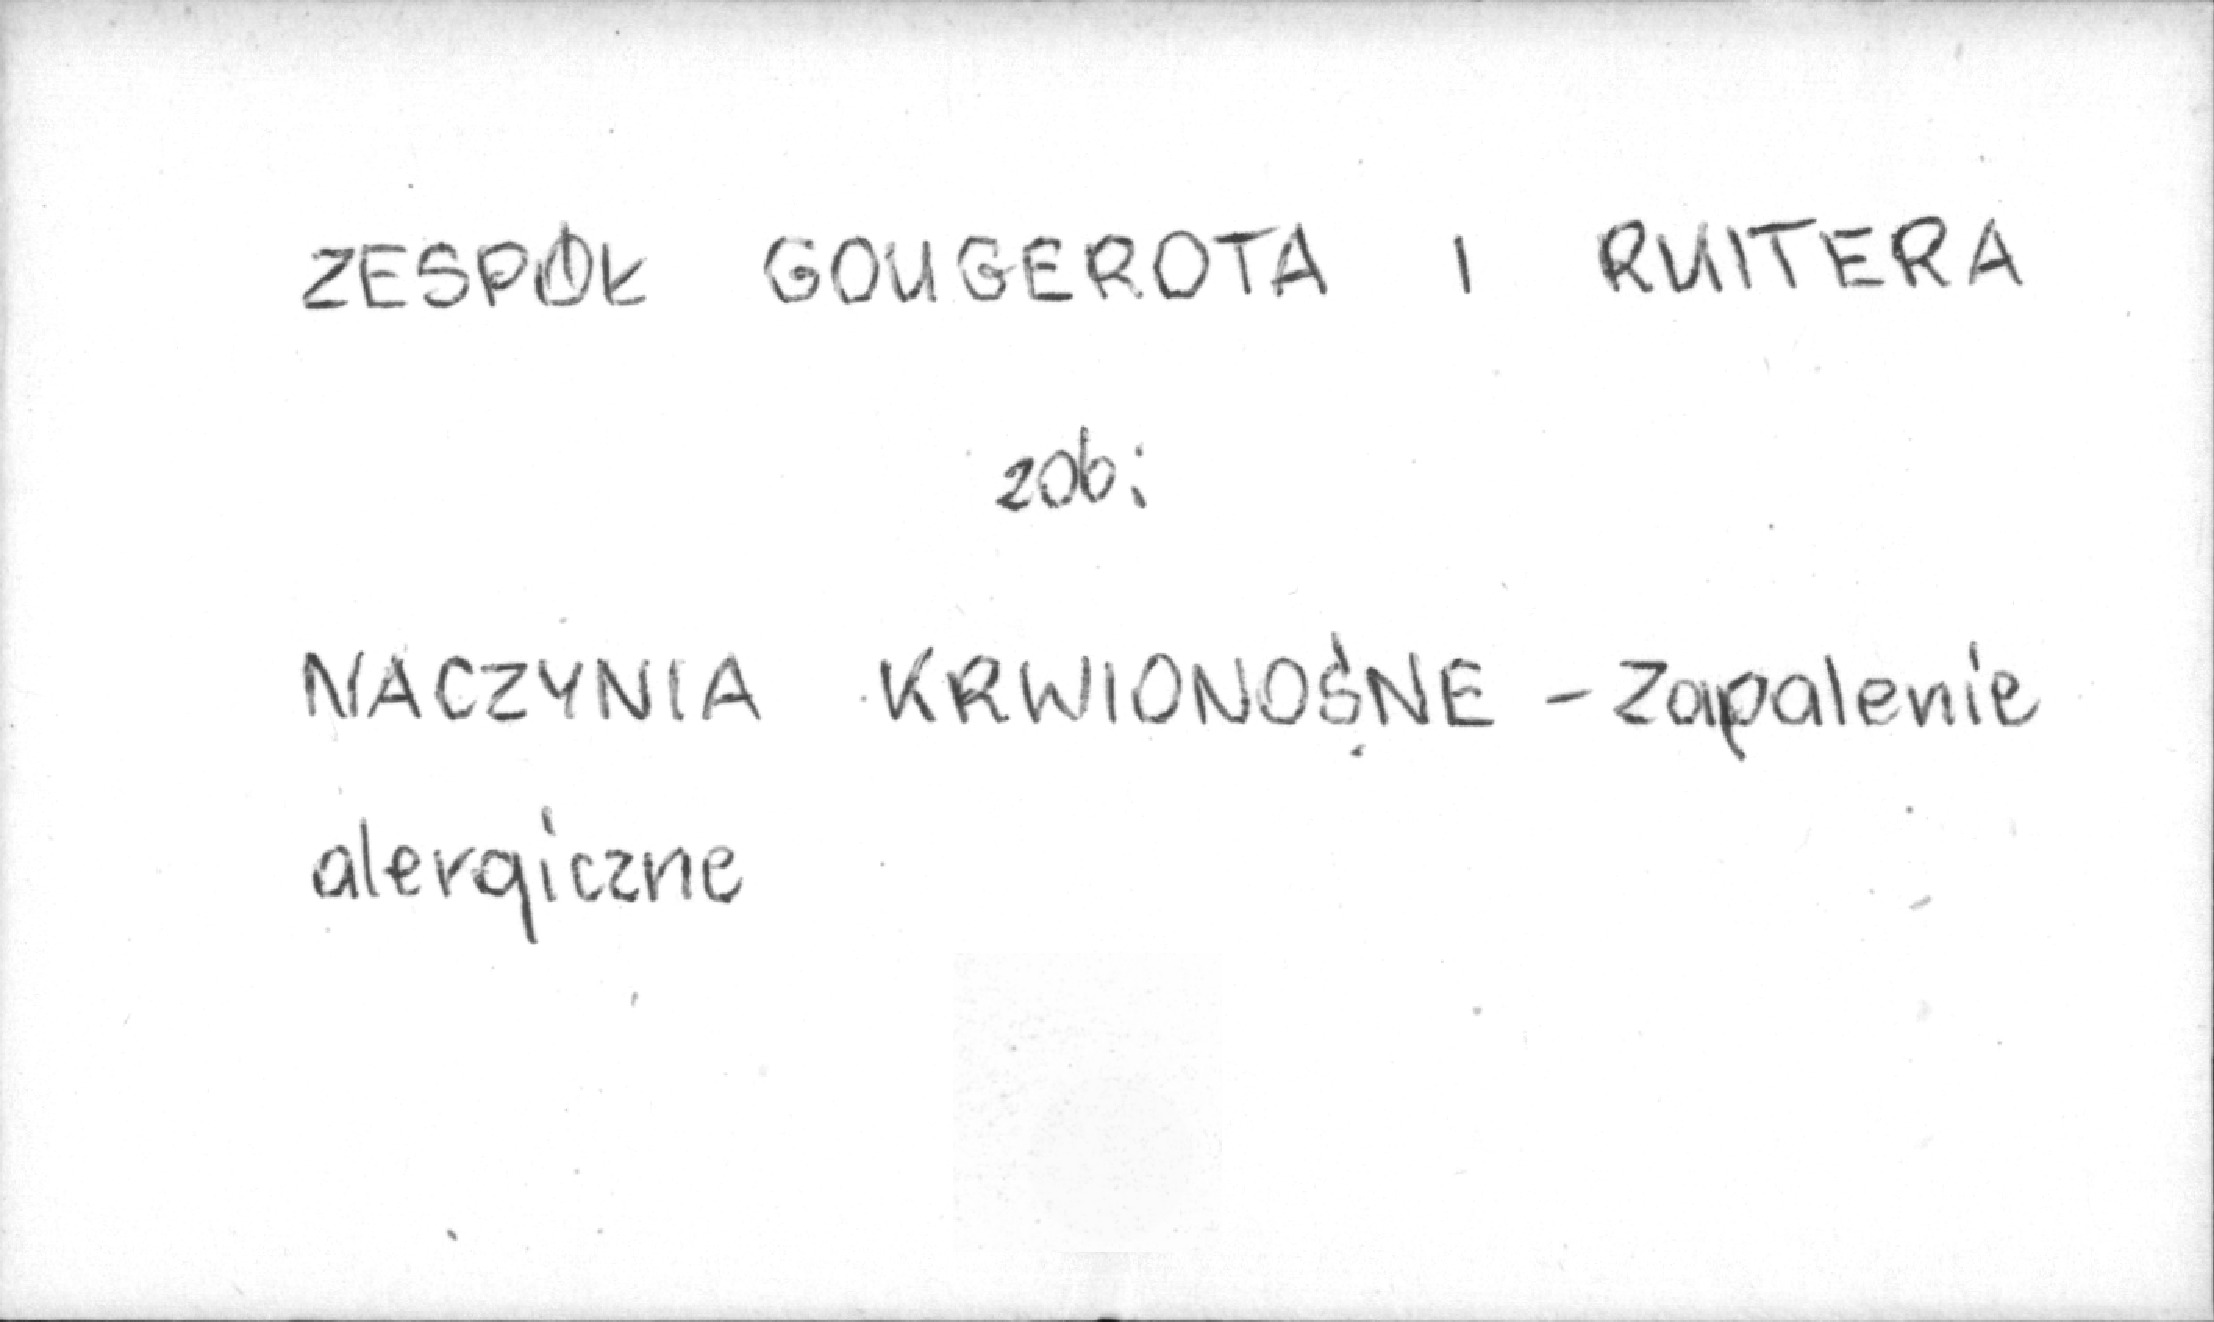 ZESPÓŁ GOUGEROTA I RUITERA
zob:
NACZYNIA KRWIONOŚNE - Zapalenie
alergiczne